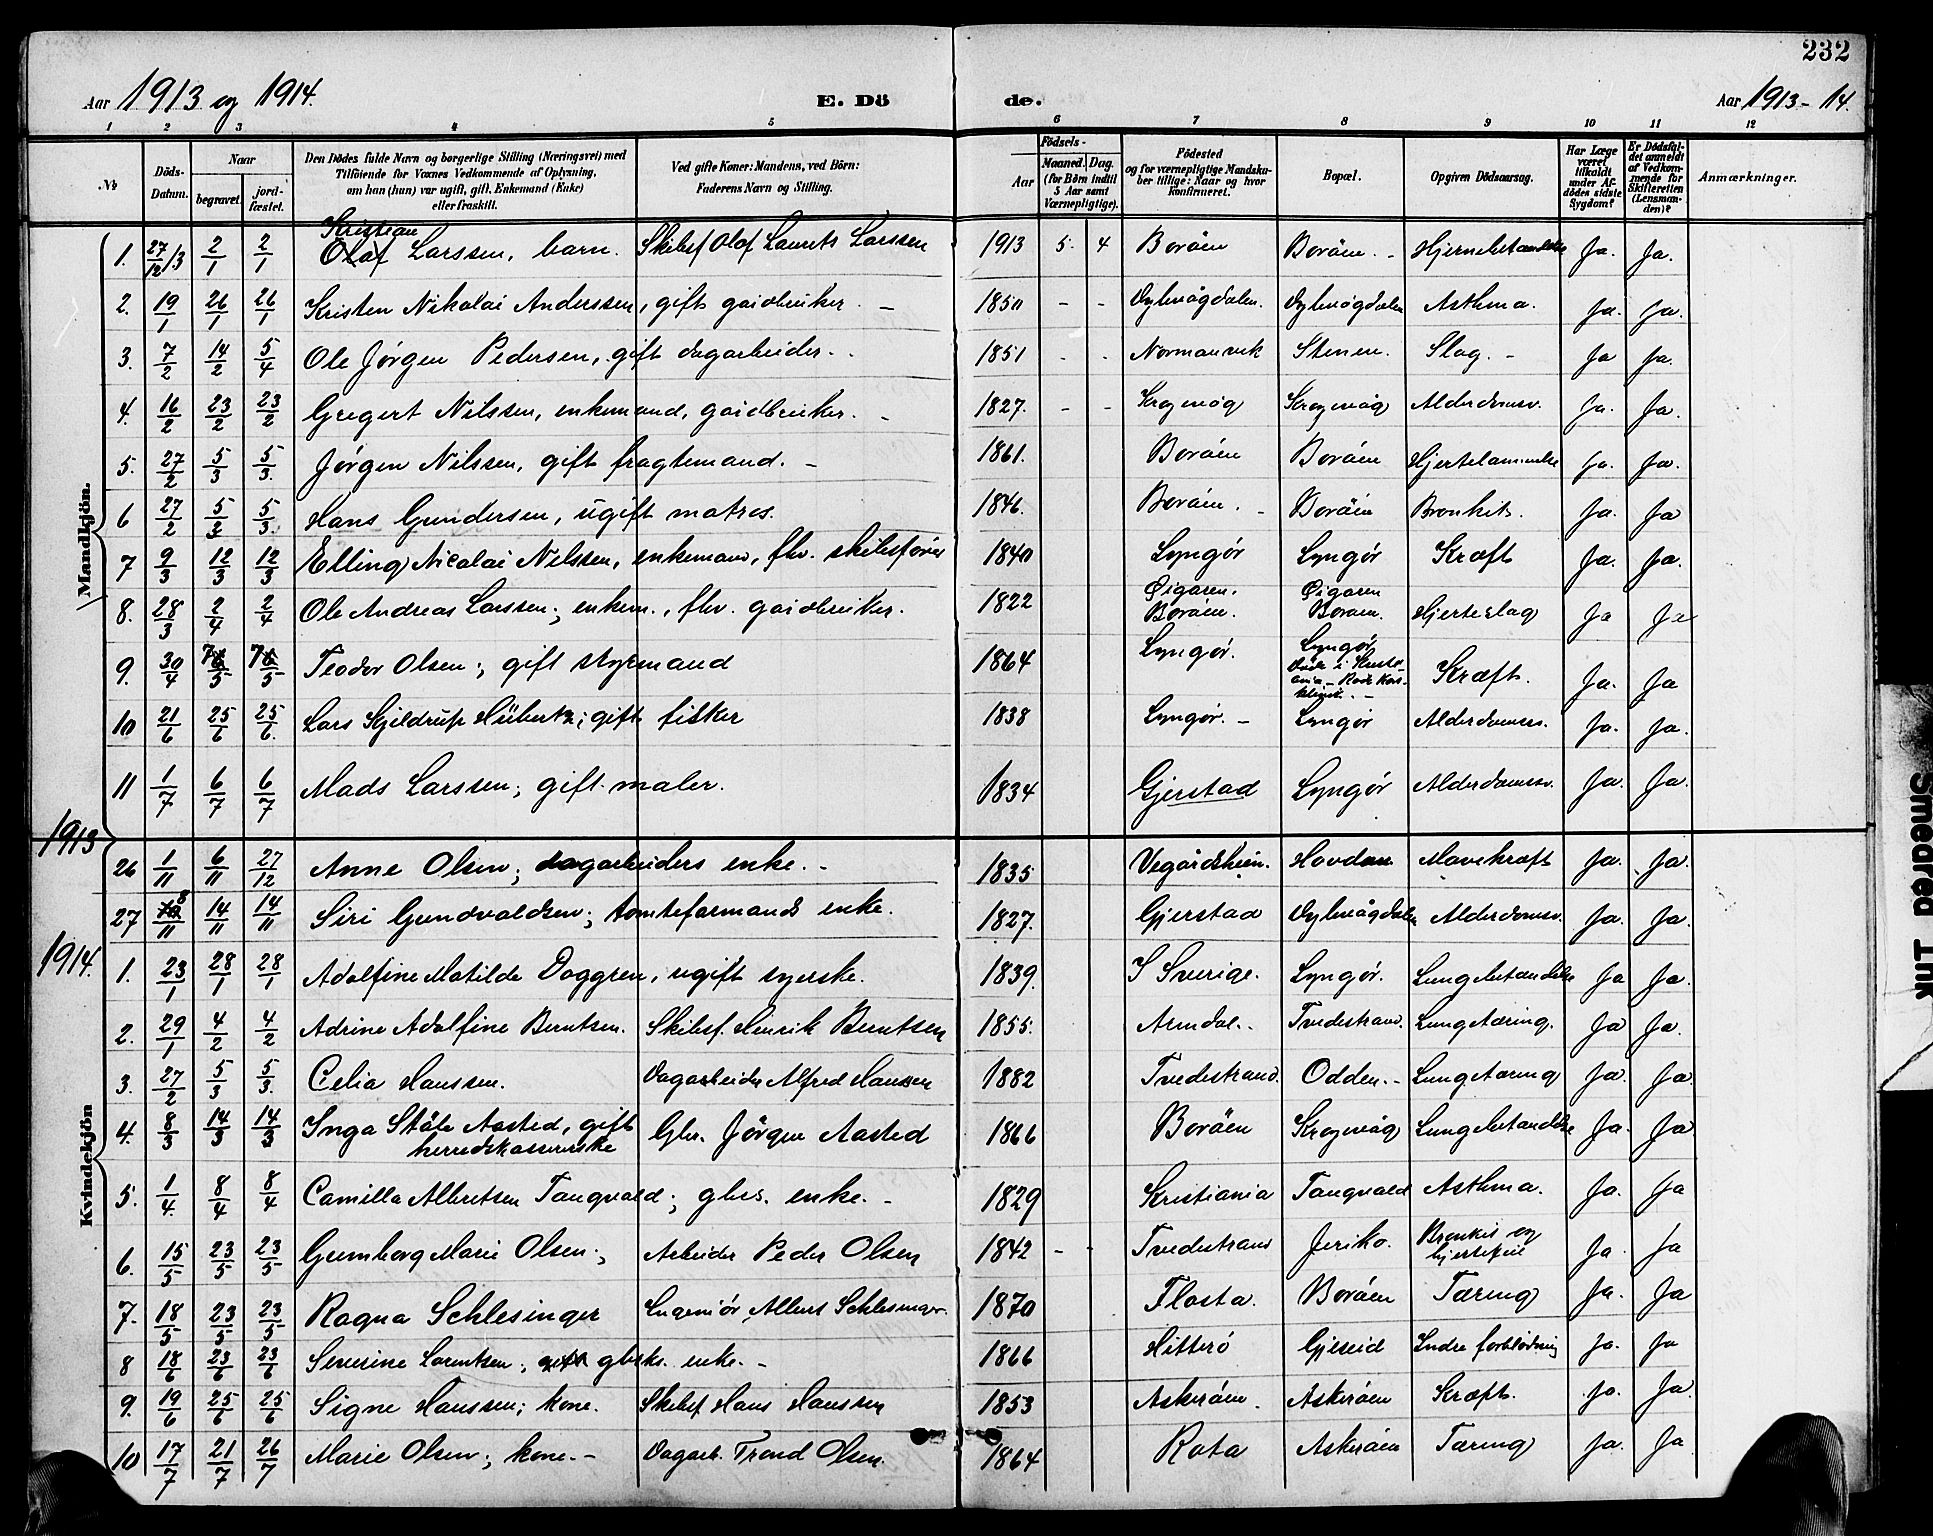 232
Aar 1913 og 1914. E. Dö de. Aar 1913-14.
1 2 3 4 5 6 7 8 9 10 11 12
№ Döds-Datum. Naar begravet. jordfæstet. Den Dödes fulde Navn og borgerlige Stilling (Næringsvei) med Tilföiende for Voxnes Vedkommende af Oplysning, om han (hun) var ugift, gift, Enkemand (Enke) eller fraskilt. Ved gifte Koner: Mandens, ved Börn: Faderens Navn og Stilling. Födsels- Aar Maaned. Dag. (for Börn indtil 5 Aar samt Værnepligtige). Födested og for værnepligtige Mandskaber tillige: Naar og hvor konfirmeret. Bopæl. Opgiven Dödsaarsag. Har Læge været tilkaldt under Afdödes sidste Sygdom? Er Dödsfaldet anmeldt af Vedkommende for Skifteretten (Lensmanden)? Anmærkninger.
Mandkjön.
Kristian
1. 27/12/13 2/1 2/1 Olaf Larssen, barn. Skibsf Olaf Laurits Larssen 1913 5. 4 Boröen Boröen. - Hjernebetændelse Ja. Ja.
2. 19/1 26/1 26/1 Kristen Nikolai Anderssen, gift gaidbruker - 1850 - - Dybevågdalen. Dybevågdalen Asthma. Ja. Ja.
3. 7/2 14/2 5/4 Ole Jørgen Pedersen, gift dagarbeider. - 1851 - - Normanvik Stenen. Slag. - Ja Ja.
4. 16/2 23/2 23/2 Gregert Nilssen, enkemand, gaidbruker. - 1827. - - Krogevåg Krogevåg Alderdomsv. Ja. Ja.
5. 27/2 5/3 5/3. Jørgen Nilssen, gift fragtemand. - 1861. Boröen Boröen Hjertelammelse Ja. Ja.
6 27/2 5/3 5/3. Hans Gundersen, ugift matros. 1846. Boröen. - Boröen Bronkit. Ja. Ja
7 9/3 12/3 12/3 Elling Nicolai Nilssen, enkemand, fhv. skibsfører 1840 Lyngör Lyngör Kræft Ja. Ja.
8. 28/3 2/4 2/4 Ole Andreas Larssen; enkem., fhv. gaidbruker. 1822 Øigaren. Boröen. Øigaren Boröen. Hjerteslag Ja Ja
9. 30/4 7/5 7/5 Teodor Olsen; gift styrmand 1864 Lyngör. Lyngör, Kræft. Ja. Ja
10 21/6 25/6 25/6. Lars Kjeldrup Hübertz; gift fisker 1838 Lyngör. - Lyngör Alderdomsv. Ja. Ja.
11 1/7 6/7 6/7 Mads Larssen; gift maler. 1834 Gjerstad Lyngör Alderdomsv. Ja. Ja.
1913
Kvindekjön
26 1/11 6/11 27/12 Anne Olsen; dagarbeiders enke. - 1835 Vegårdsheim. Hovdan Mavekræft Ja. Ja.
27 8/11 14/11 14/11 Siri Gundvaldsen; tomteformands enke. 1827. Gjerstad Dybevågdalen Alderdomsv. Ja. Ja.
1914.
1. 23/1 28/1 28/1 Adolfine Matilde Doggren, ugift syerske. 1839. I Sverige. Lyngör. Lungebetændelse Ja Ja.
2. 29/1 4/2 4/2 Adrine Adolfine Berntsen. Skibsf. Henrik Berntsen 1855. Arendal. Tvedestrand. Lungetæring. Ja Ja.
3. 27/2 5/3 5/3. Celia Hanssen. Dagarbeider Alfred Hanssen 1882 Tvedestrand. Odden. - Lungetæring Ja. Ja.
4. 8/3 14/3 14/3 Inga Ståle Aasted, gift Gbr. Jörgen Aasted 1866 Boröen Krogevåg Lungebetændelse Ja. Ja
herredskasererske
5. 1/4. 8/4 8/4 Camilla Albertsen Tangvald; gbrs. enke. - 1829 Kristiania Tangvald Asthma. Ja. Ja
6. 15/5 23/5 23/5 Gunborg Marie Olsen; Arbeider Peder Olsen 1842 - - Tvedestrand Jeriko. Bronkit og hjertefeil Ja. Ja
7. 18/5 23/5 23/5 Ragna Schlesinger Ingeniör, Albert Schlesinger. 1870 Flosta. Boröen Tæring Ja. Ja
8 18/6 23/6 23/6 Severine Lorentsen; gift gbrks. enke. - 1866 Hitterö Gjeseid Indre forblödning Ja. Ja
9. 19/6 25/6 25/6 Signe Hanssen; kone. Skibsf Hans Hanssen 1853 Askeröen. Askeröen Kræft. Ja. Ja.
10 17/7 21/7 26/7 Marie Olsen; kone. - Dagarb. Trond Olsen. 1864 Rota Askeröen Tæring Ja. Ja
Smeared Ink